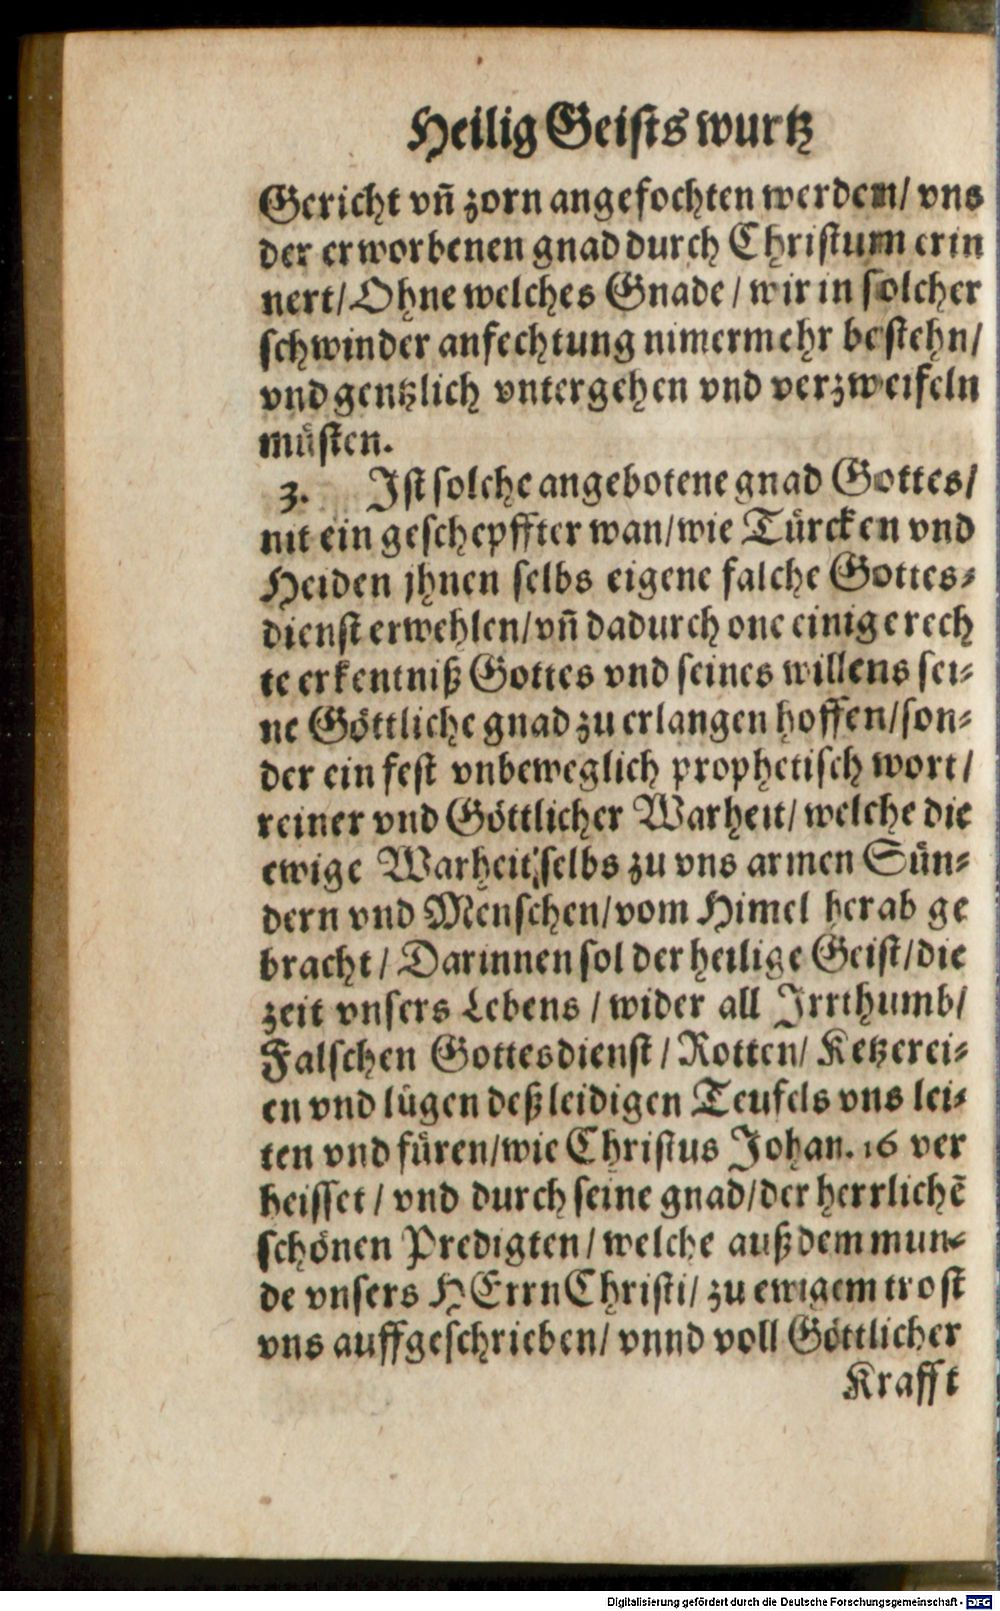 Heilig Geists wurtz
Gericht vñ zorn angefochten werdem/ vns
der erworbenen gnad durch Christum erin
nert/ Ohne welches Gnade / wir in solcher
schwinder anfechtung nimermehr bestehn/
vnd gentzlich vntergehen vnd verzweifeln
müsten.
3. Ist solche angebotene gnad Gottes/
nit ein geschepffter wan/ wie Türcken vnd
Heiden jhnen selbs eigene falche Gottes-
dienst erwehlen/ vñ dadurch one einige rech
te erkentniß Gottes vnd seines willens sei-
ne Göttliche gnad zu erlangen hoffen/ son-
der ein fest vnbeweglich prophetisch wort/
reiner vnd Göttlicher Warheit/ welche die
ewige Warheit/ selbs zu vns armen Sün-
dern vnd Menschen/ vom Himel herab ge
bracht / Darinnen sol der heilige Geist/ die
zeit vnsers Lebens / wider all Irrthumb/
Falschen Gottesdienst / Rotten/ Ketzerei-
en vnd lügen deß leidigen Teufels vns lei-
ten vnd füren/ wie Christus Johan. 16 ver
heisset / vnd durch seine gnad/ der herrlichẽ
schönen Predigten / welche auß dem mun-
de vnsers HErrn Christi/ zu ewigem trost
vns auffgeschrieben/ vnnd voll Göttlicher
Krafft
Digitalisierung gefördert durch die Deutsche Forschungsgemeinschaft - DFG